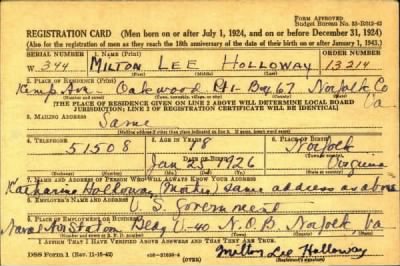 FORM APPROVED
Budget Bureau No. 33-R012-43
REGISTRATION CARD (Men born on or after July 1, 1924, and on or before December 31, 1924)
(Also for the registration of men as they reach the 18th anniversary of the date of their birth on or after January 1, 1943.)
SERIAL NUMBER 1. NAME (Print) ORDER NUMBER
W 344 MILTON LEE HOLLOWAY 13214
(First) (Middle) (Last)
2. PLACE OF RESIDENCE (Print)
Kemp Ave Oakwood Rt 1 Box 67 Norfolk Co Va
(Number and street) (Town, township, village, or city) (County) (State)
[THE PLACE OF RESIDENCE GIVEN ON LINE 2 ABOVE WILL DETERMINE LOCAL BOARD
JURISDICTION; LINE 2 OF REGISTRATION CERTIFICATE WILL BE IDENTICAL]
3. MAILING ADDRESS
Same
[Mailing address if other than place indicated on line 2. If same, insert word same]
4. TELEPHONE 5. AGE IN YEARS 6. PLACE OF BIRTH
51508 18 Norfolk
DATE OF BIRTH
Jan 25 1926 Virginia
7. NAME AND ADDRESS OF PERSON WHO WILL ALWAYS KNOW YOUR ADDRESS
Katharine Holloway (Mother) same address as above
8. EMPLOYER'S NAME AND ADDRESS
U. S. Government
9. PLACE OF EMPLOYMENT OR BUSINESS
Naval Air Station Bldg U-40 N.O.B. Norfolk Va
I AFFIRM THAT I HAVE VERIFIED ABOVE ANSWERS AND THAT THEY ARE TRUE.
DSS Form 1 (Rev. 11-16-42)
Milton Lee Holloway